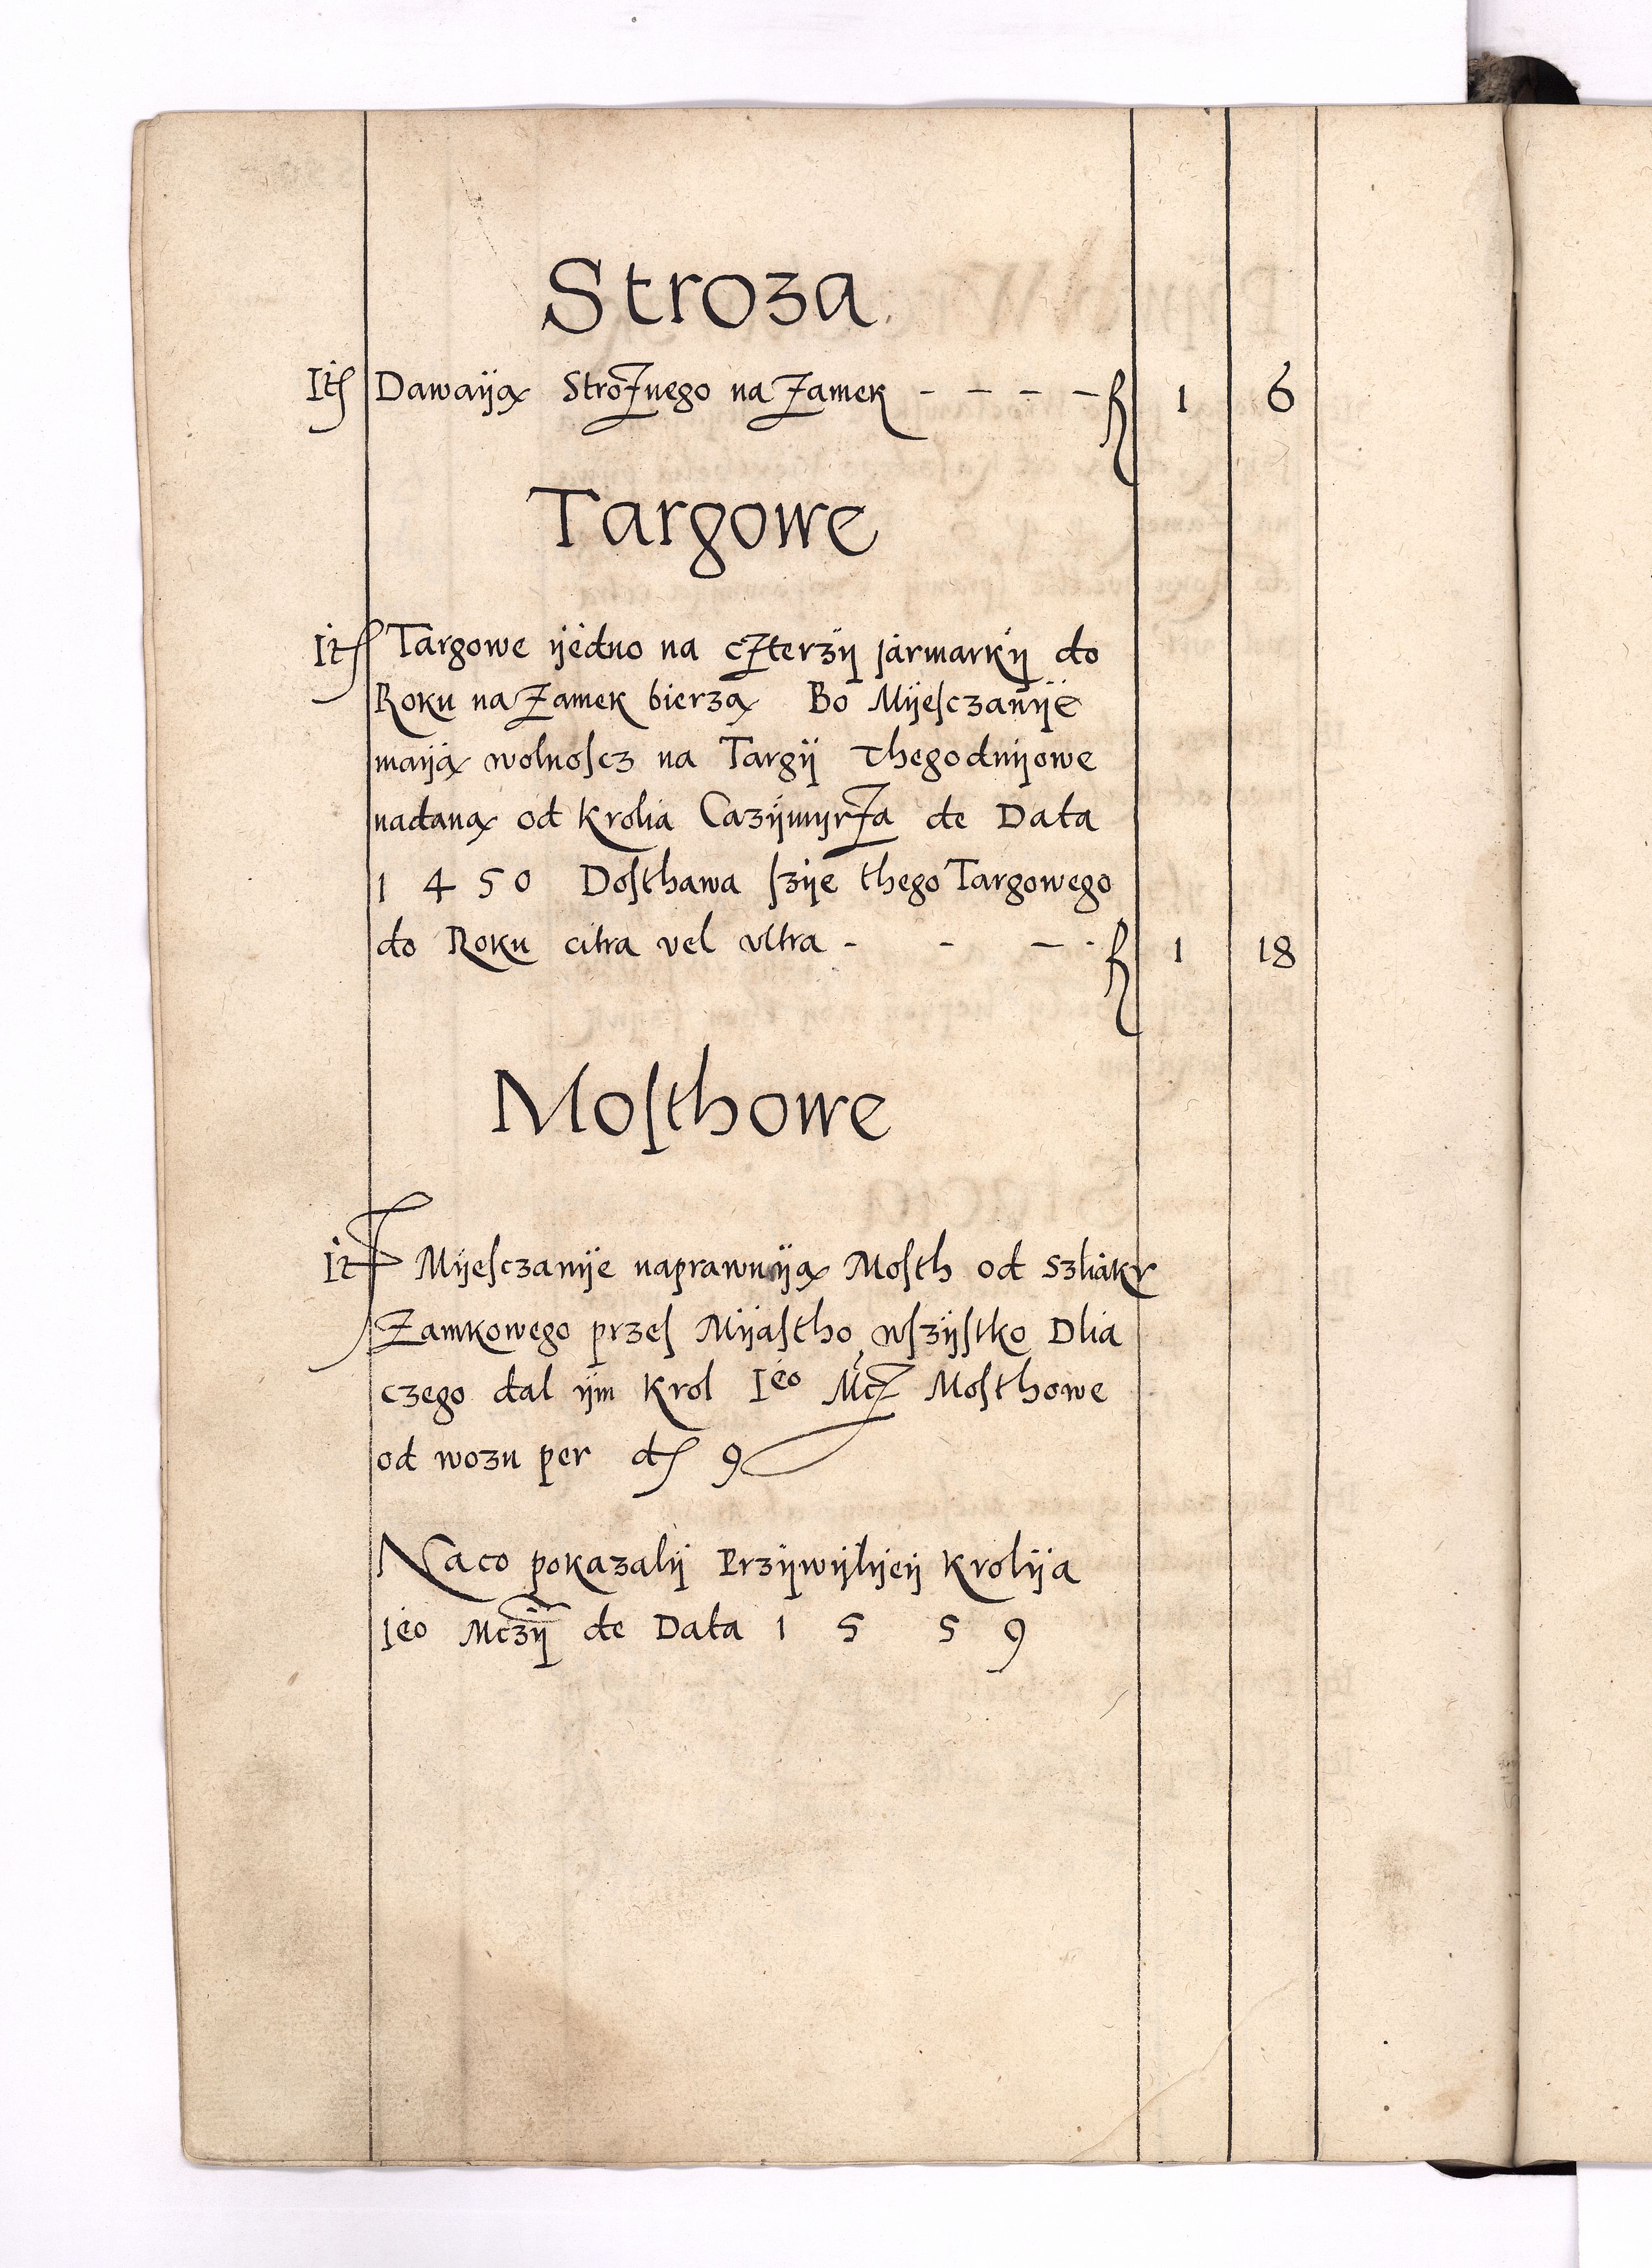 Stroza
It Dawaÿą Stroznego na Zamek - - - - f 1 6
Targowe
It Targowe ÿedno na czterzÿ jarmarkÿ do
Roku na Zamek bierzą Bo Mÿesczanÿe
maÿą wolnoscz na Targÿ thegodnÿowe
nadaną od Krolia Cazÿmÿrza de Data
1450 Dosthawa szÿe thego Targowego
do Roku citra vel vltra - - - f 1 18
Mosthowe
It Mÿesczanÿe naprawuÿą Mosth od
Zamkowego przes Mÿastho wszÿstko Dlia
czego dal ÿm Krol Ieo Mcz Mosthowe
od wozu per d 9
Naco pokazalÿ Przÿwÿlÿeÿ Krolÿa
Ieo Mczÿ de Data 1559